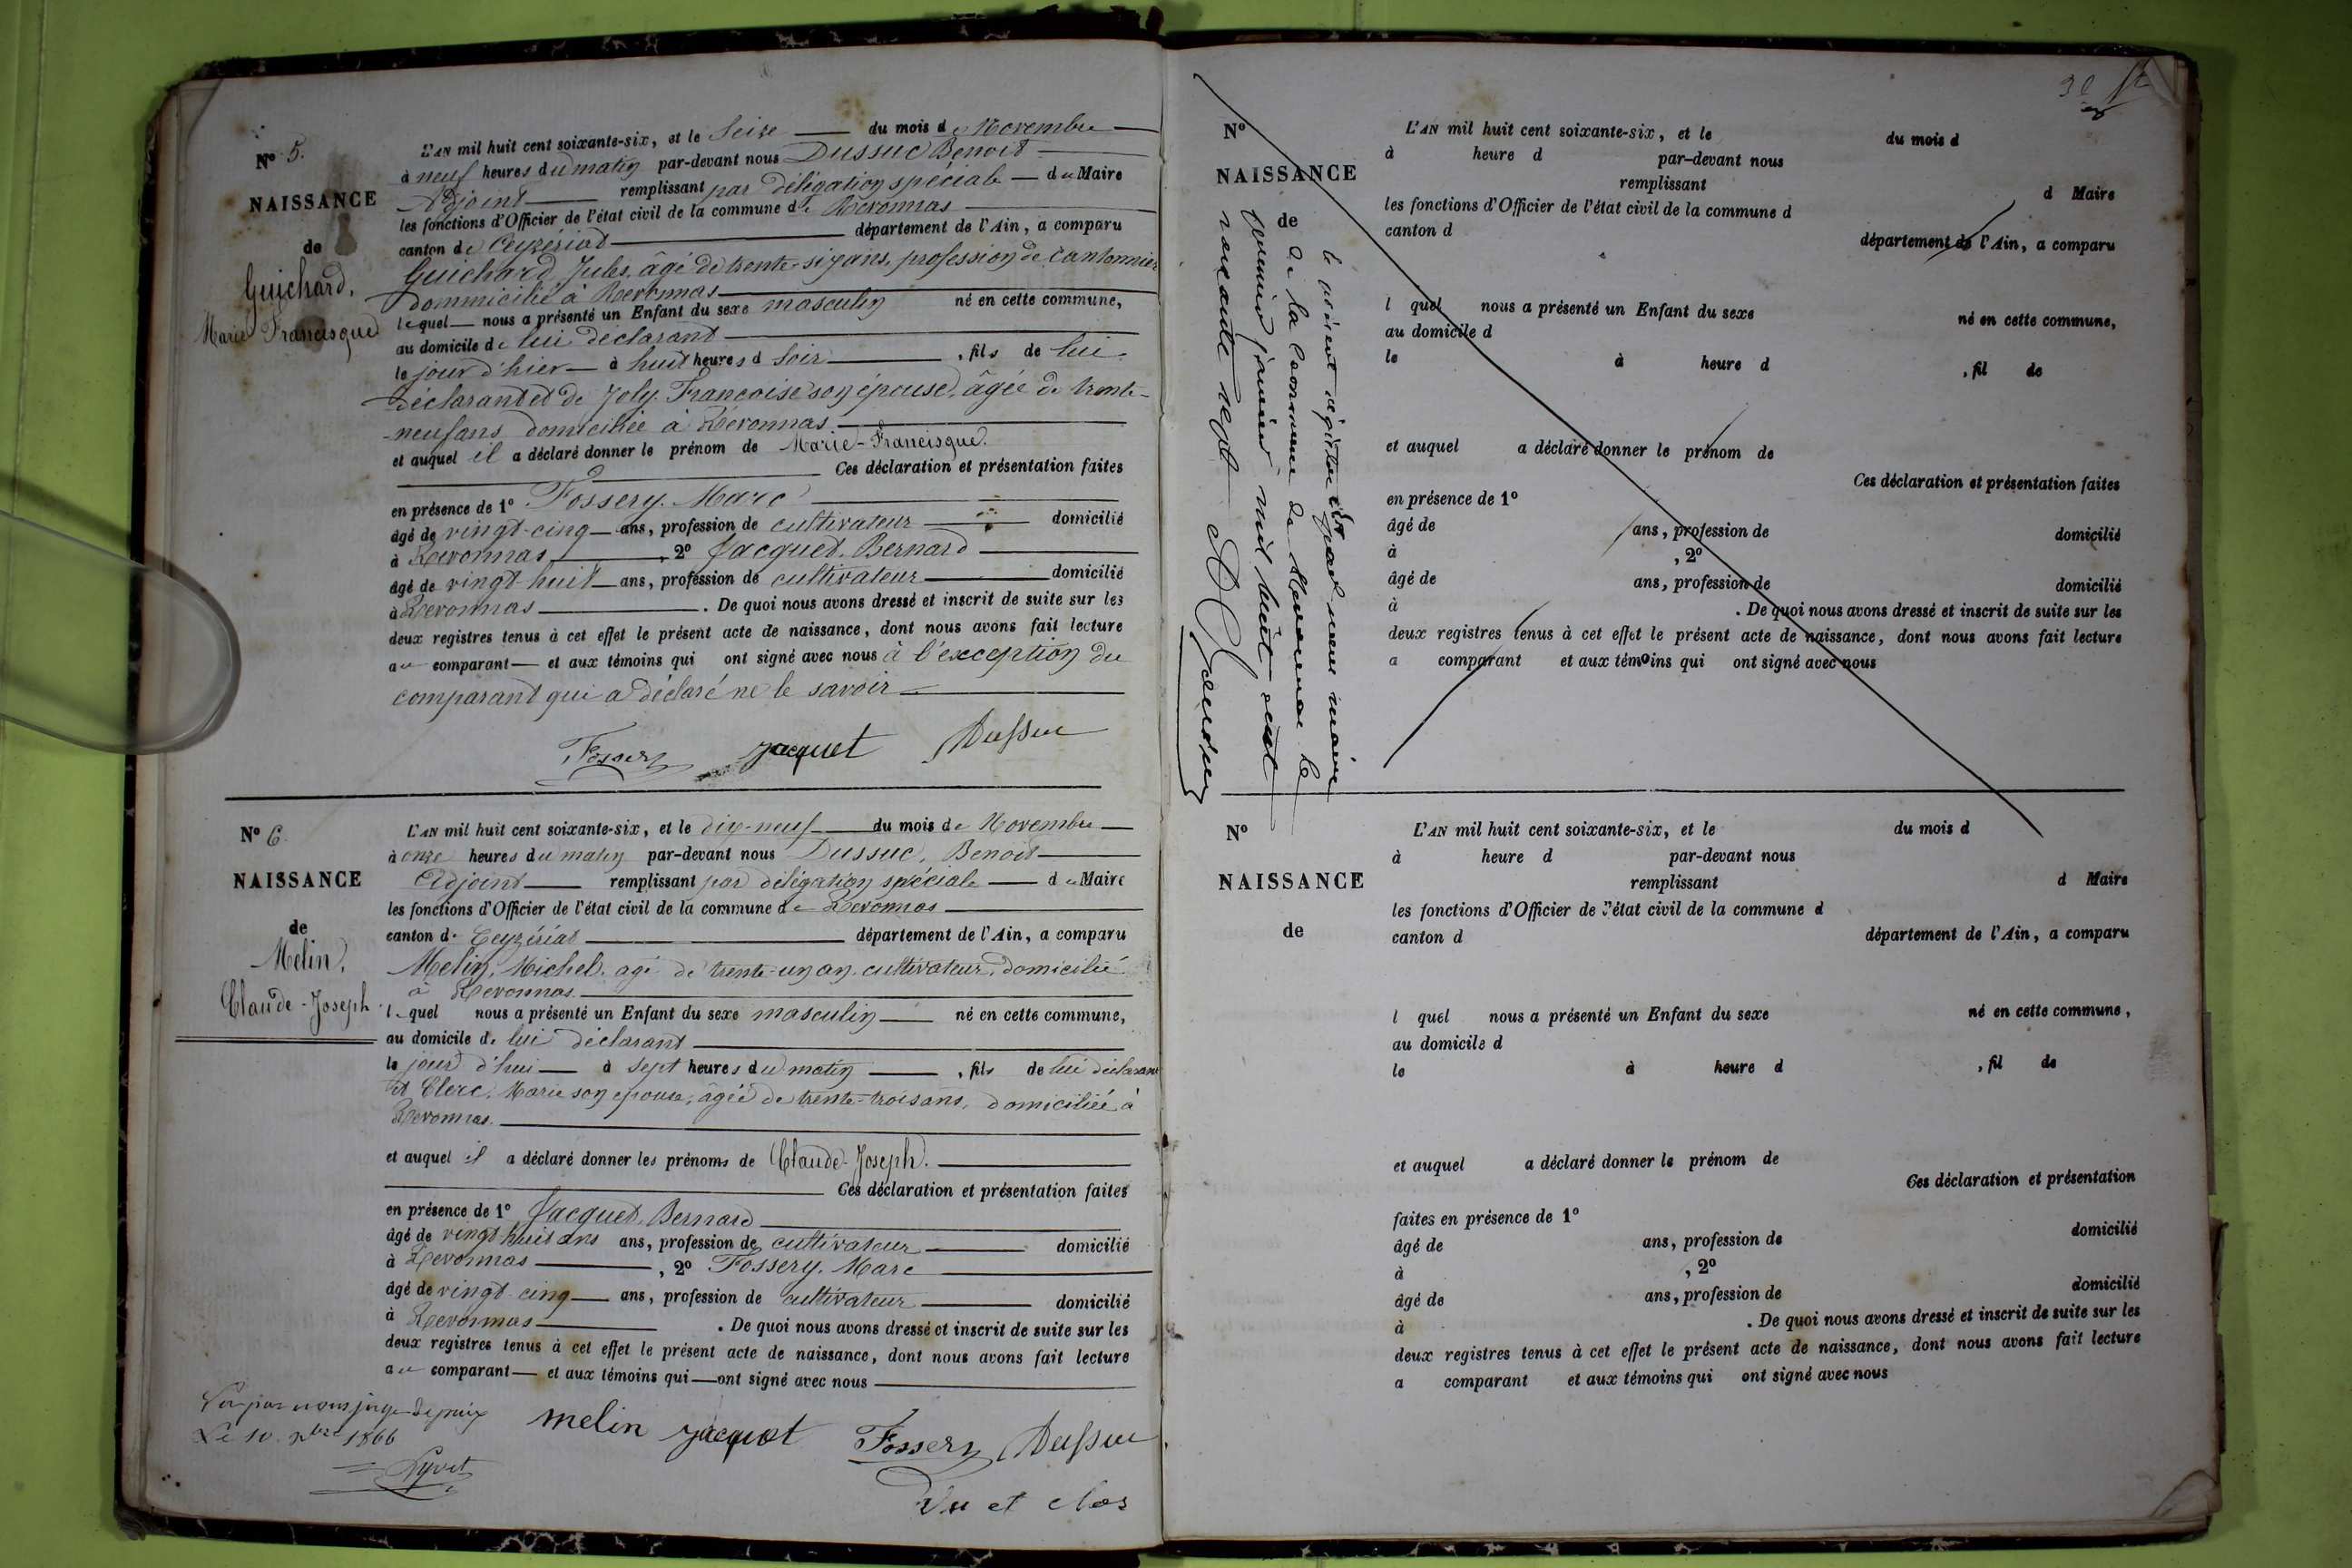 N° 5.
NAISSANCE
de
Guichard,
Marie Francisque
L'AN mil huit cent soixante-six, et le Seize du mois de Novembre
à neuf heures du matin par-devant nous Dussuc Benoit
Adjoint remplissant par délégation spéciale du Maire
les fonctions d'Officier de l'état civil de la commune de Revonnas
canton de Ceyzériat département de l'Ain, a comparu
Guichard Jules, âgé de trente-six ans, profession de cantonnier
dommicilié à Revonnas
lequel nous a présenté un Enfant du sexe masculin né en cette commune,
au domicile de lui déclarant
le jour d'hier à huit heures d soir, fils de lui
déclarant et de Joly Francoise son épouse, âgée de trente-
neuf ans domiciliée à Revonnas
et auquel il a déclaré donner le prénom de Marie-Francisque.
Ces déclaration et présentation faites
en présence de 1° Fossery. Marc
âgé de vingt-cinq ans, profession de cultivateur domicilié
à Revonnas, 2° Jacquet. Bernard
âgé de vingt-huit ans, profession de cultivateur domicilié
à Revonnas. De quoi nous avons dressé et inscrit de suite sur les
deux registres tenus à cet effet le présent acte de naissance, dont nous avons fait lecture
au comparant et aux témoins qui ont signé avec nous à l'exception du
comparant qui a déclaré ne le savoir
Fossery Jacquet Dussuc
N° 6
NAISSANCE
de
Melin,
Claude-Joseph
L'AN mil huit cent soixante-six, et le dix-neuf du mois de Novembre
à onze heures du matin par-devant nous Dussuc, Benoit
Adjoint remplissant par délégation spéciale du Maire
les fonctions d'Officier de l'état civil de la commune de Revonnas
canton de Ceyzériat département de l'Ain, a comparu
Melin, Michel. agé de trente-un an. cultivateur, domicilié
à Revonnas.
lequel nous a présenté un Enfant du sexe masculin né en cette commune,
au domicile de lui déclarant
le jour d'hui à sept heures du matin, fils de lui déclarant
et Clerc, Marie son épouse, âgée de trente-trois ans, domiciliée à
Revonnas.
et auquel il a déclaré donner les prénoms de Claude-Joseph.
Ces déclaration et présentation faites
en présence de 1° Jacquet. Bernard
âgé de vingt huit ans ans, profession de cultivateur domicilié
à Revonnas, 2° Fossery. Marc
âgé de vingt-cinq ans, profession de cultivateur domicilié
à Revonnas. De quoi nous avons dressé et inscrit de suite sur les
deux registres tenus à cet effet le présent acte de naissance, dont nous avons fait lecture
au comparant et aux témoins qui ont signé avec nous
Vu par nous juge de paix
Le 10 Xbre 1866
melin Jacquet Fossery Dussuc
Vu et clos
N°
NAISSANCE
de
le présent régistre par nous maire
de la Commune de Revonnas le
premier janvier mil huit cent
soixante sept
L'AN mil huit cent soixante-six, et le du mois d
à heure d par-devant nous
remplissant d Maire
les fonctions d'Officier de l'état civil de la commune d
canton d département de l'Ain, a comparu
l quel nous a présenté un Enfant du sexe né en cette commune,
au domicile d
le à heure d , fil de
et auquel a déclaré donner le prénom de
Ces déclaration et présentation faites
en présence de 1°
âgé de ans, profession de domicilié
à , 2°
âgé de ans, profession de domicilié
à . De quoi nous avons dressé et inscrit de suite sur les
deux registres tenus à cet effet le présent acte de naissance, dont nous avons fait lecture
a comparant et aux témoins qui ont signé avec nous
N°
NAISSANCE
de
L'AN mil huit cent soixante-six, et le du mois d
à heure d par-devant nous
remplissant d Maire
les fonctions d'Officier de l'état civil de la commune d
canton d département de l'Ain, a comparu
l quel nous a présenté un Enfant du sexe né en cette commune,
au domicile d
le à heure d , fil de
et auquel a déclaré donner le prénom de
Ces déclaration et présentation
faites en présence de 1°
âgé de ans, profession de domicilié
à , 2°
âgé de ans, profession de domicilié
à . De quoi nous avons dressé et inscrit de suite sur les
deux registres tenus à cet effet le présent acte de naissance, dont nous avons fait lecture
a comparant et aux témoins qui ont signé avec nous